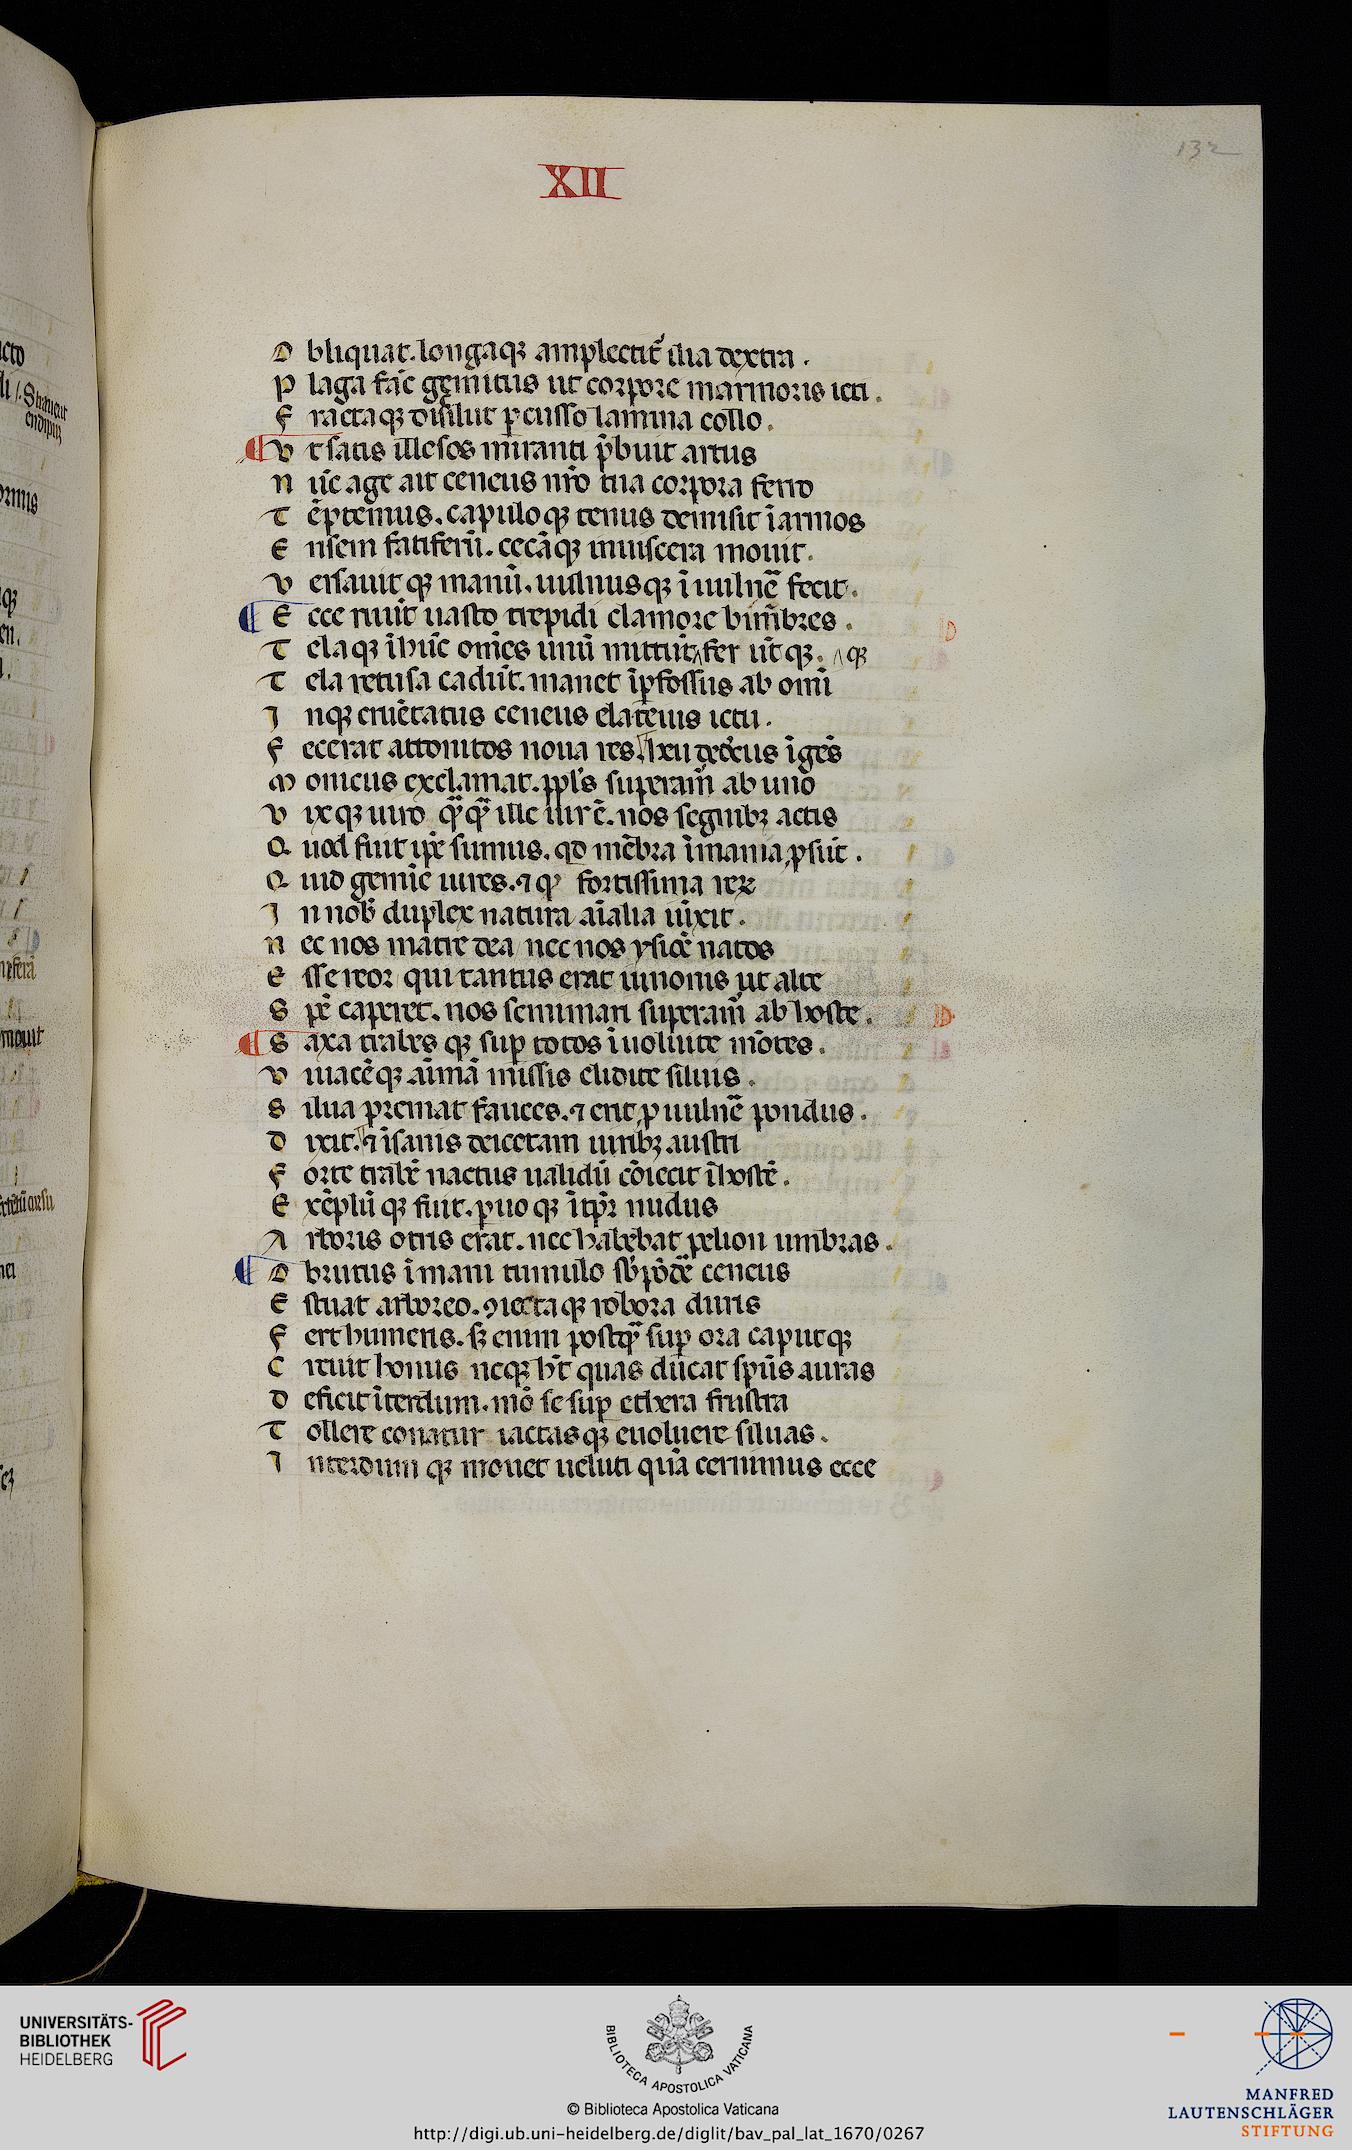 132
XII
O bliquat. longaqꝫ amplectit᷑ ilia dextra .
P laga fac̄ gemitus ut corpore marmoris icti .
F ractaqꝫ disiluit ꝑcusso lamina collo .
V t satis illesos miranti p̄buit artus
N ūc age ait ceneus nr̄o tua corpora ferro
T ēptemus. capuloqꝫ tenus demisit ī armos
E nsem fatiferū. cecāqꝫ inuiscera mouit.
V ersauit qꝫ manū. uulnusqꝫ ī uulnē fecit.
E cce ruūt uasto trepidi clamore bimēbres .
T elaqꝫ ī hūc om̄es unū mittūt fer ūtqꝫ . qꝫ
T ela retusa cadūt. manet īꝑfossus ab omī
I nqꝫ cruētatus ceneus elateius ictu .
F ecerat attonitos noua res. heu dedecus īgēs
M onicus exclamat. ppl̄s superam̄ ab uno
V ixqꝫ uiro qͣqͣ ille uir ē. nos segnibꝫ actis
Q uod fuit ip̄e sumus. qd mēbra īmania ꝓsūt .
Q uid gemīe uires. ⁊ qͥ fortissima reꝝ
I n nob̄ duplex natura aīalia iūxit .
N ec nos matre dea nec nos ysiōe natos
E sse reor qui tantus erat iunonis ut alte
S pē caperet. nos semimari superam̄ ab hoste .
S axa trabes qꝫ suꝑ totos īuoluite mōtes .
V iuacēqꝫ aīmā missis elidite siluis .
S ilua premat fauces. ⁊ erit ꝓ uulnē pondus .
D ixit. ⁊ īsanis deiectam uiribꝫ austri
F orte trabē nactus ualidū cōiecit ī hostē .
E xēplū qꝫ fuit. ꝑuo qꝫ ī tꝑr nudus
A rboris otris erat. nec habebat pelion umbras .
O brutus īmani tumulo sb̄ pōdē ceneus
E stuat arboreo. ꝯiectaqꝫ robora duris
F ert humeris. sꝫ enim postqͣ suꝑ ora caputqꝫ
C reuit honus neqꝫ hꝫ quas ducat sp̄us auras
D eficit īterdum. mō se suꝑ ethera frustra
T ollere conatur iactasqꝫ euoluere siluas .
I nterdum qꝫ mouet ueluti quā cernimus ecce
UNIVERSITÄTS-
BIBLIOTHEK
HEIDELBERG
BIBLIOTECA APOSTOLICA VATICANA
© Biblioteca Apostolica Vaticana
http://digi.ub.uni-heidelberg.de/diglit/bav_pal_lat_1670/0267
MANFRED
LAUTENSCHLÄGER
STIFTUNG